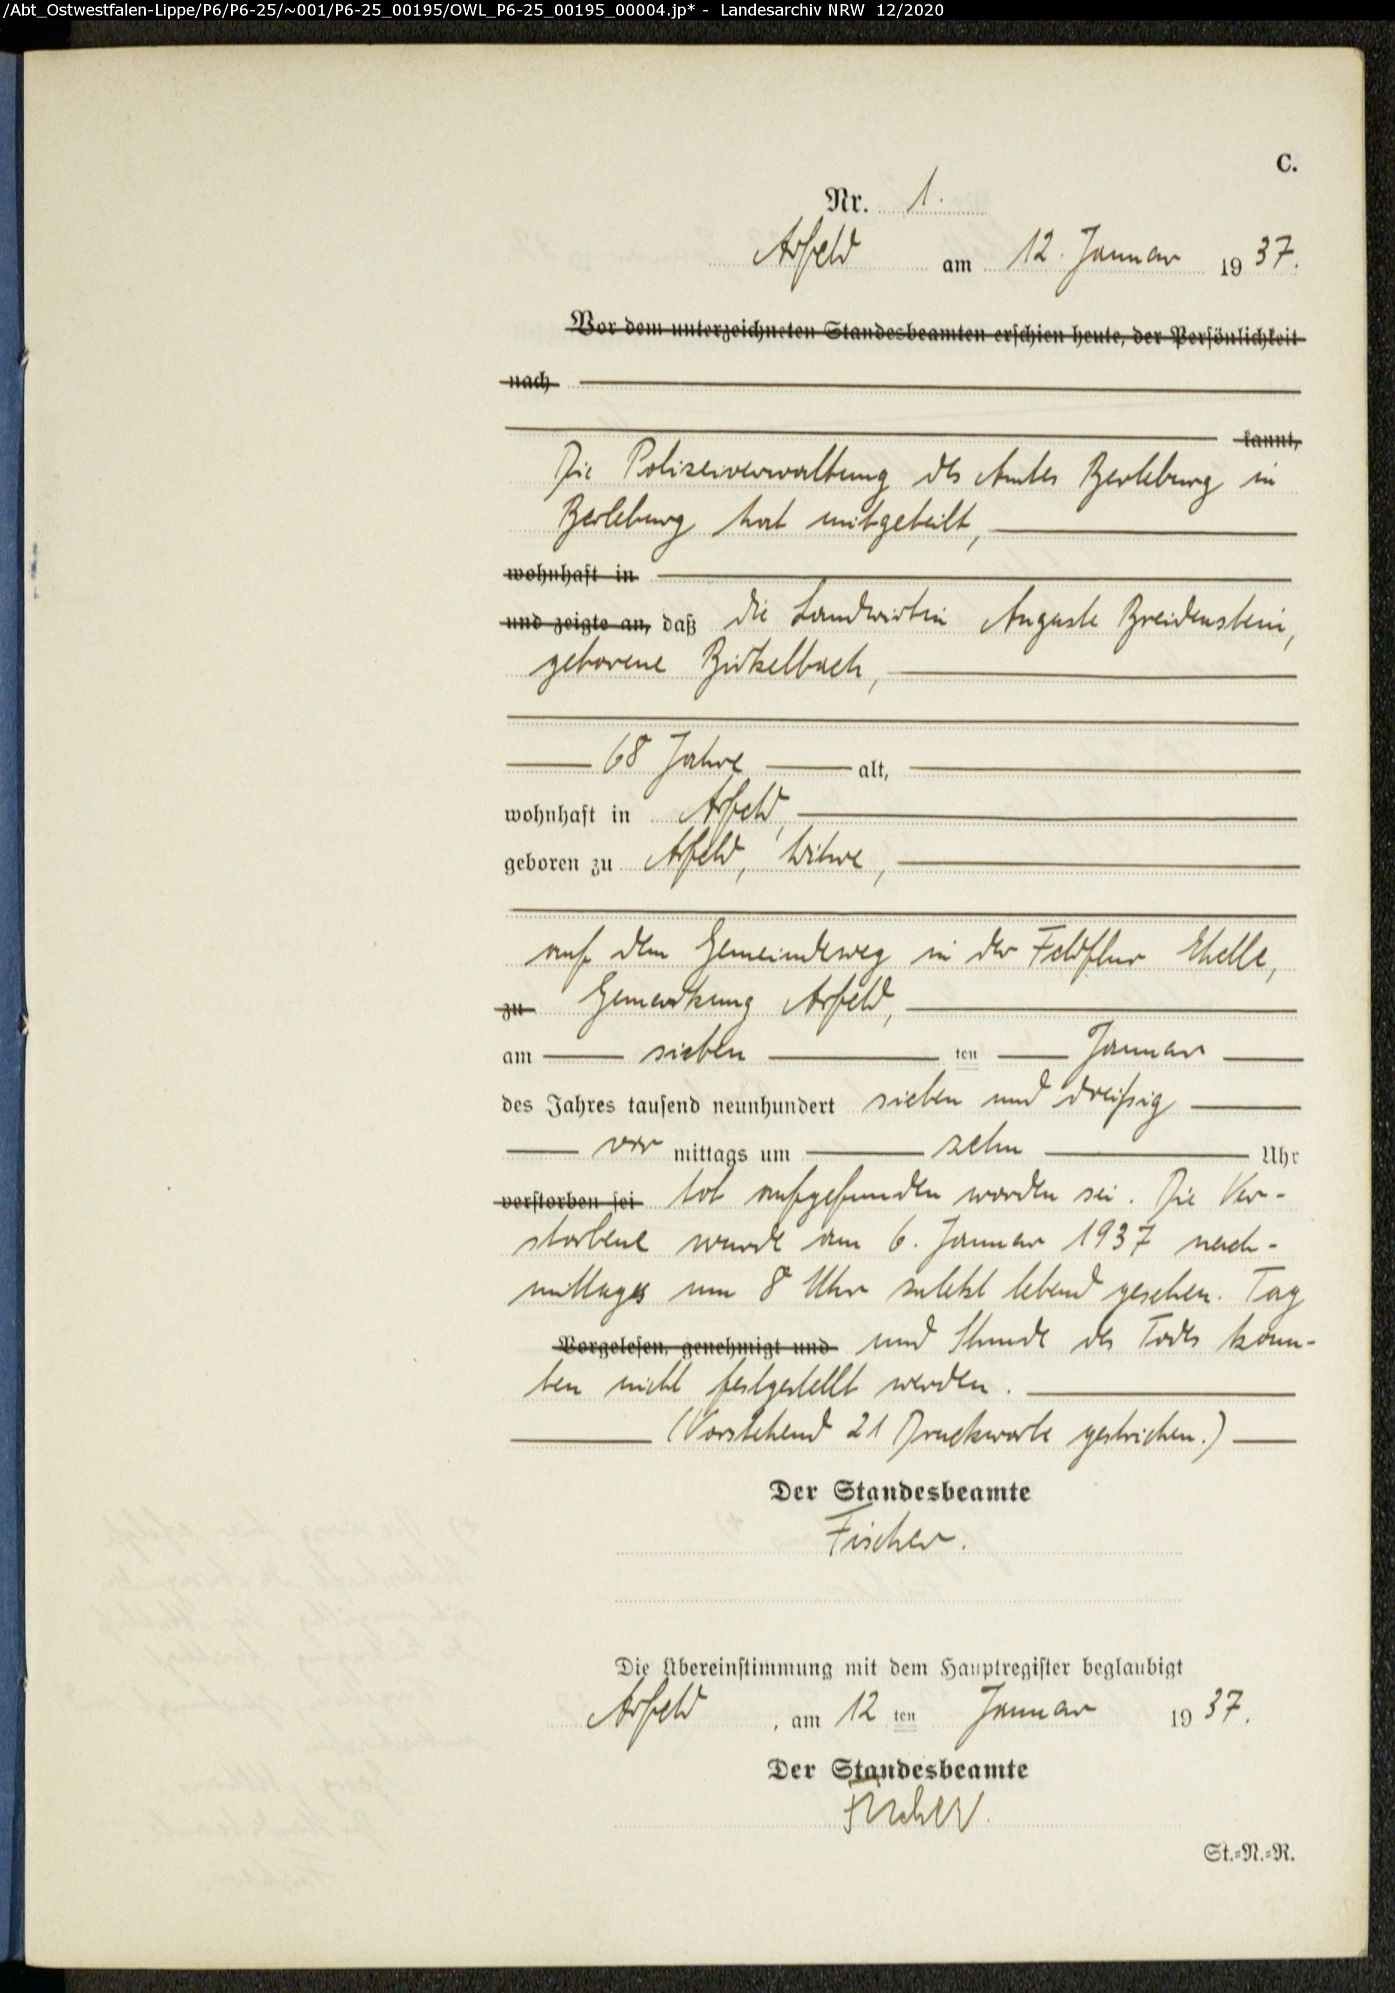 /Abt_Ostwestfalen-Lippe/P6/P6-25/~001/P6-25_00195/OWL_P6-25_00195_00004.jp* - Landesarchiv NRW 12/2020
C.
Nr. 1.
Arfeld am 12. Januar 1937.
Vor dem unterzeichneten Standesbeamten erschien heute, der Persönlichkeit
nach
kannt,
Die Polizeiverwaltung des Amtes Berleburg in
Berleburg hat mitgeteilt,
wohnhaft in
und zeigte an, daß die Landwirtin Auguste Breidenstein,
geborene Birkelbach,
68 Jahre alt,
wohnhaft in Arfeld,
geboren zu Arfeld, Witwe,
auf dem Gemeindeweg in der Feldflur Ehelle,
zu Gemarkung Arfeld,
am sieben ten Januar
des Jahres tausend neunhundert sieben und dreißig
vor mittags um zehn Uhr
verstorben sei tot aufgefunden worden sei. Die Ver-
storbene wurde am 6. Januar 1937 nach-
mittags um 8 Uhr zuletzt lebend gesehen. Tag
Vorgelesen, genehmigt und und Stunde des Todes konn-
ten nicht festgestellt werden.
(Vorstehend 21 Druckworte gestrichen.)
Der Standesbeamte
Fischer.
Die Übereinstimmung mit dem Hauptregister beglaubigt
Arfeld, am 12 ten Januar 1937.
Der Standesbeamte
Fischer.
St.-N.-R.